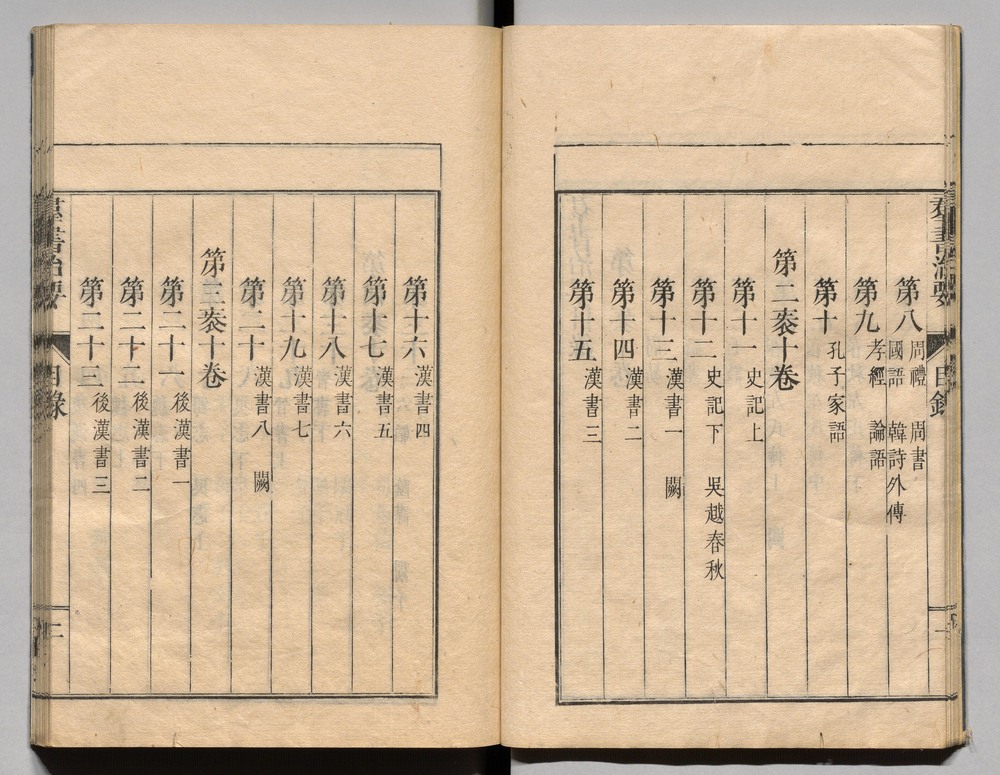 群書治要 目錄 一
第八 周禮 周書
國語 韓詩外傳
第九 孝經 論語
第十 孔子家語
第二袠十卷
第十一 史記上
第十二 史記下 吳越春秋
第十三 漢書一 闕
第十四 漢書二
第十五 漢書三
第十六 漢書四
第十七 漢書五
第十八 漢書六
第十九 漢書七
第二十 漢書八 闕
第三袠十卷
第二十一 後漢書一
第二十二 後漢書二
第二十三 後漢書三
羣書治要 目錄 二